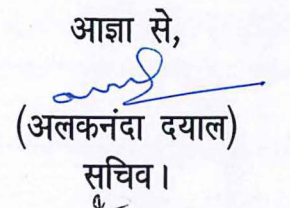 आज्ञा से,
(अलकनंदा दयाल)
सचिव।